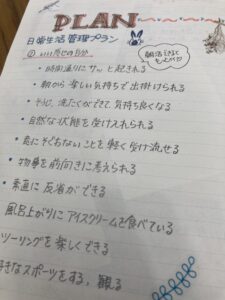 PLAN
日常生活管理プラン
① いい感じの自分。
・時間通りに サッ と起きれる
・朝から 楽しい気持ちで 出掛けられる
・そうじ、洗たくができて、気持ち良くなる
・自然な状態を 受け入れられる
・意にそぐわないことを 軽く受け流せる
・物事を前向きに考えられる
・素直に 反省ができる
風呂上がりに アイスクリームを食べている
ツーリングを 楽しくできる
好きなスポーツをする, 観る